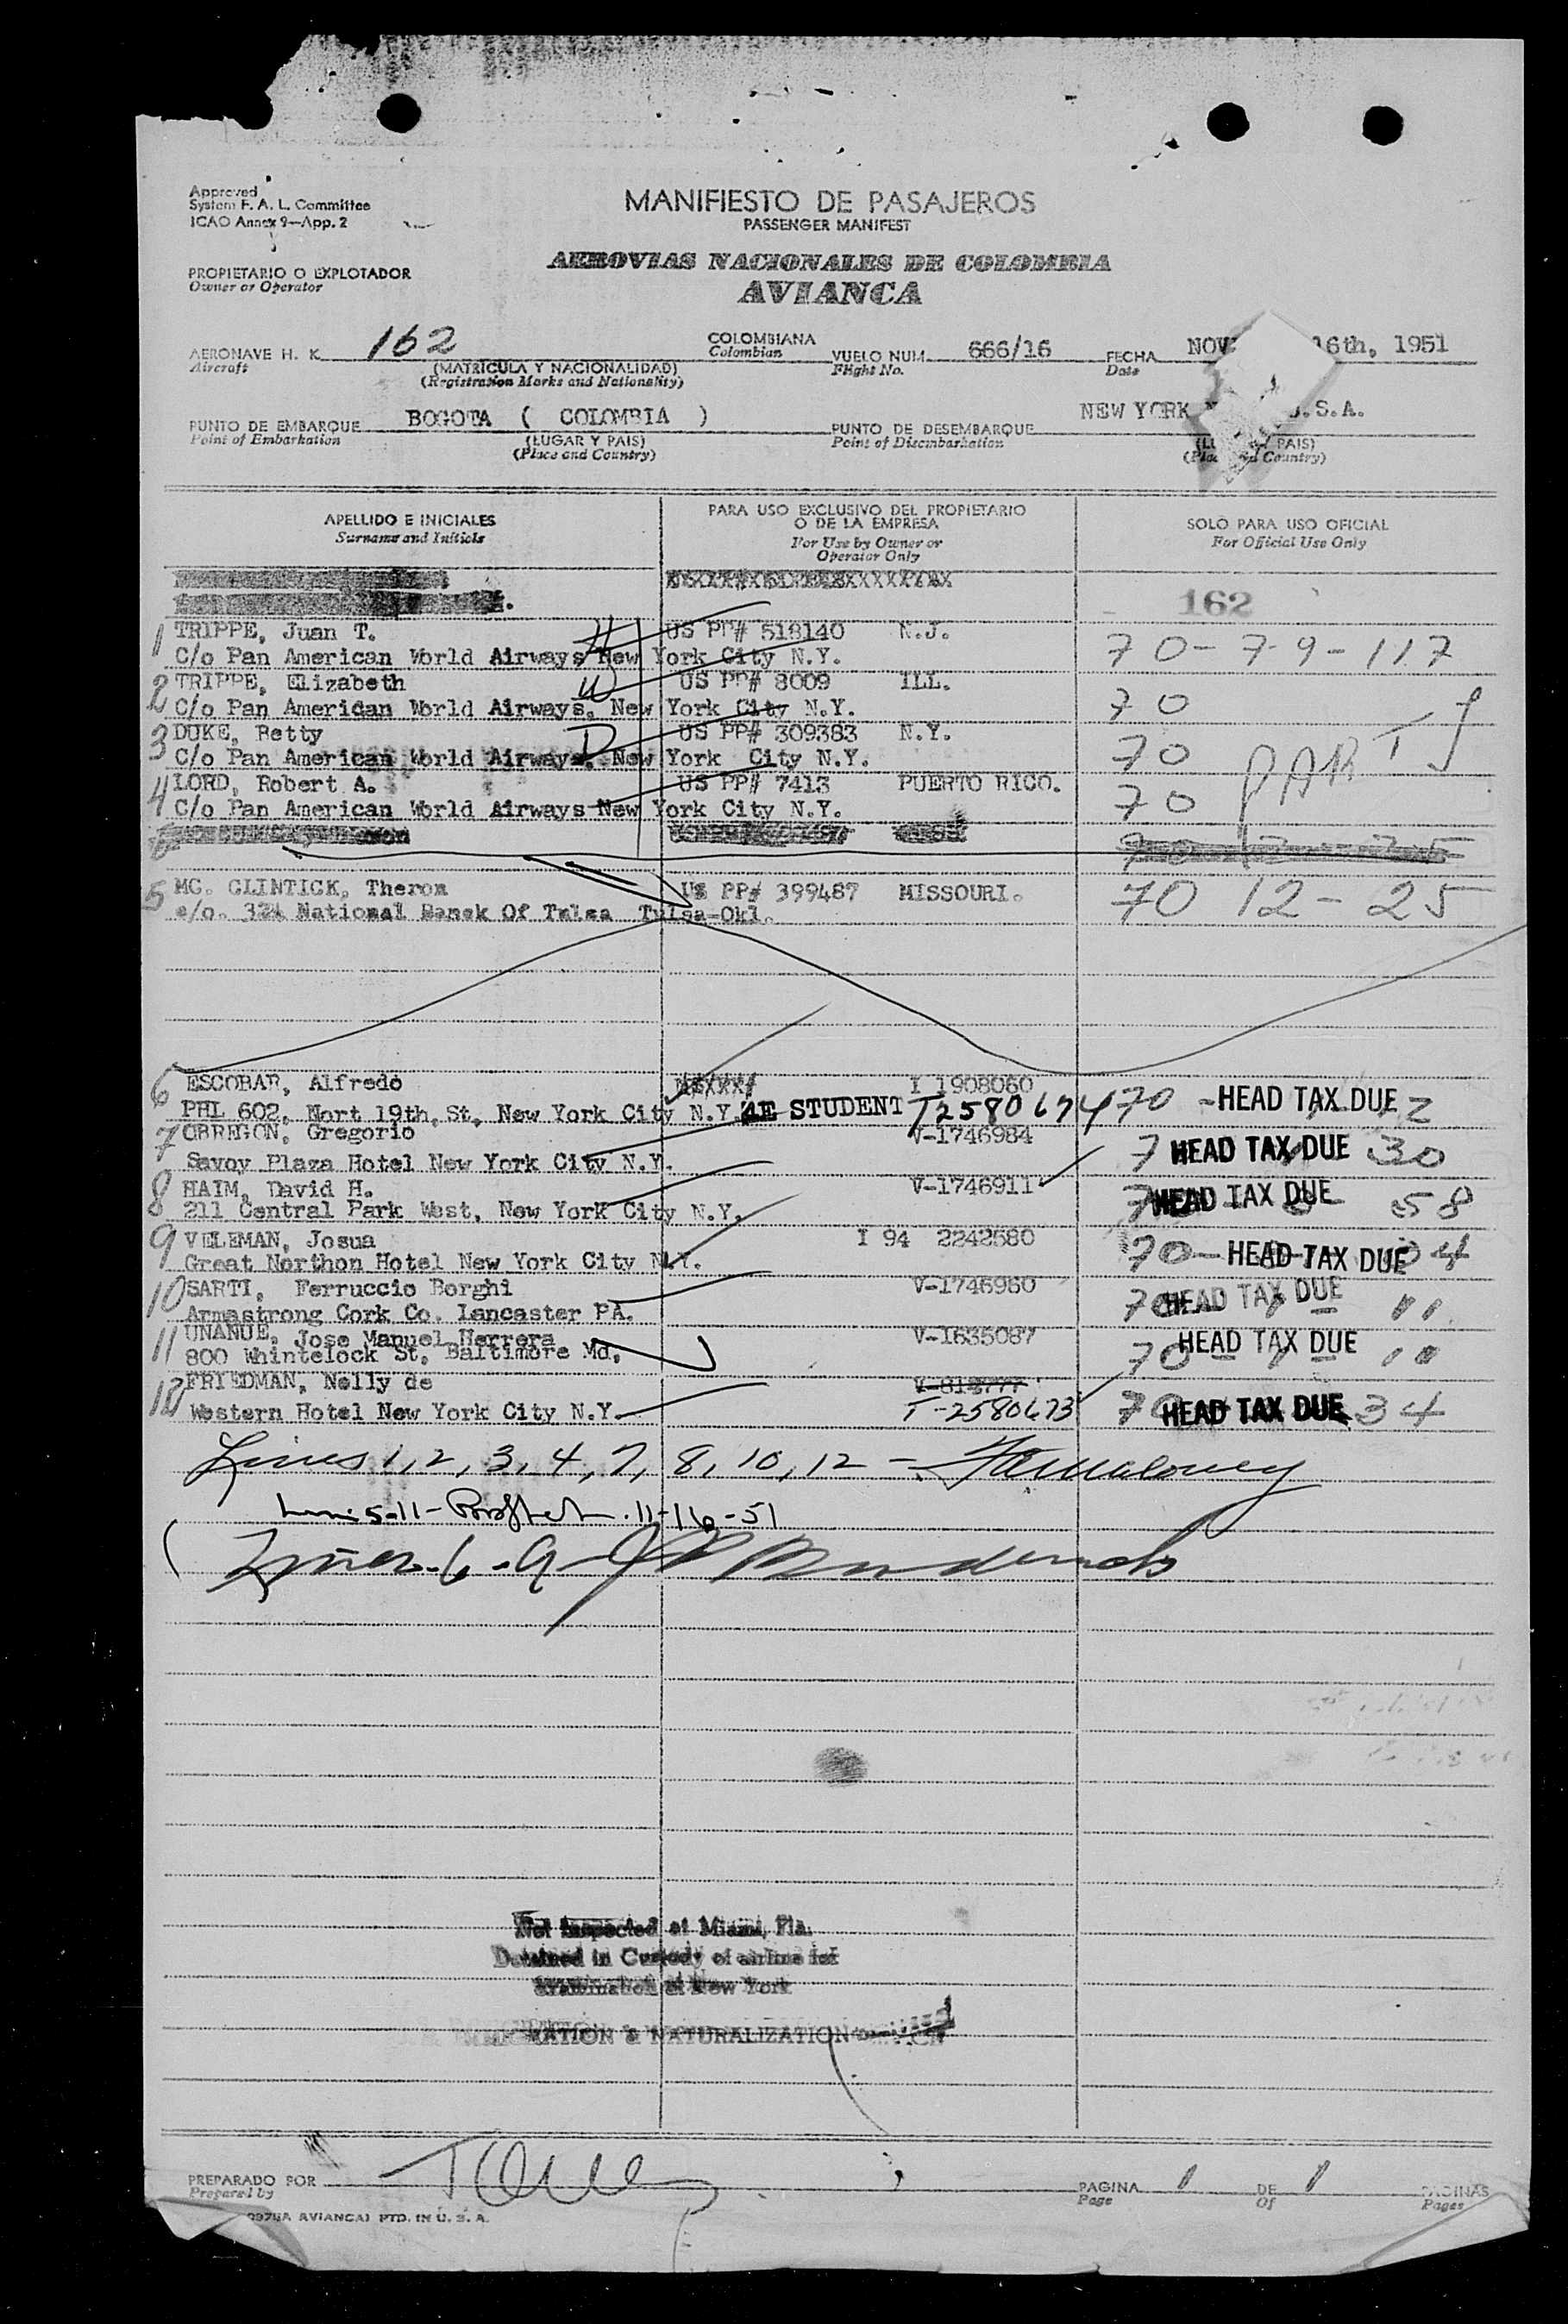 Approved
System F. A. L. Committee
ICAO Annex 9—App. 2
MANIFIESTO DE PASAJEROS
PASSENGER MANIFEST
AEROVIAS NACIONALES DE COLOMBIA
AVIANCA
PROPIETARIO O EXPLOTADOR
Owner or Operator
AERONAVE H. K. 162 COLOMBIANA
Aircraft Colombian
(MATRICULA Y NACIONALIDAD)
(Registration Marks and Nationality)
VUELO NUM. 666/16 FECHA NOV 16th, 1951
Flight No. Date
PUNTO DE EMBARQUE BOGOTA ( COLOMBIA )
Point of Embarkation
(LUGAR Y PAIS)
(Place and Country)
PUNTO DE DESEMBARQUE NEW YORK .S.A.
Point of Disembarkation
PAIS)
Country)
APELLIDO E INICIALES
Surname and Initials
PARA USO EXCLUSIVO DEL PROPIETARIO
O DE LA EMPRESA
For Use by Owner or
Operator Only
SOLO PARA USO OFICIAL
For Official Use Only
162
1 TRIPPE, Juan T. US PP# 518140 N.J.
C/o Pan American World Airways New York City N.Y. 70-7-9-117
2 TRIPPE, Elizabeth W US PP# 8009 ILL.
C/o Pan Ameridan World Airways, New York City N.Y. 70
3 DUKE, Betty D US PP# 309383 N.Y.
C/o Pan American World Airways, New York City N.Y. 70 PART
4 LORD, Robert A. US PP# 7413 PUERTO RICO.
C/o Pan American World Airways New York City N.Y. 70
5 MC. CLINTICK, Theron US PP# 399487 MISSOURI.
c/o. 324 National Banck Of Tulsa Tulsa-Okl. 70 12-25
6 ESCOBAR, Alfredo I 1908060
PHL 602, Nort 19th, St, New York City N.Y. 4E STUDENT T2580674 70 - HEAD TAX DUE 2
7 OBREGON, Gregorio V-1746984
Savoy Plaza Hotel New York City N.Y. 7 HEAD TAX DUE 30
8 HAIM, David H. V-1746911
211 Central Park West, New York City N.Y. HEAD TAX DUE 58
9 VELEMAN, Josua I 94 2242580
Great Northon Hotel New York City N.Y. 70- HEAD TAX DUE 4
10 SARTI, Ferruccio Borghi V-1746960
Armastrong Cork Co. Lancaster PA. 70 HEAD TAX DUE 11
11 UNANUE, Jose Manuel Herrera V-1635087
800 Whintelock St, Baltimore Md, 70 HEAD TAX DUE 11
12 FRIEDMAN, Nelly de V-812777
Western Hotel New York City N.Y. T-2580673 70 HEAD TAX DUE 34
Lines 1, 2, 3, 4, 7, 8, 10, 12 -
5-11- 11-16-51
6-9-
Not Inspected at Miami, Fla.
Detained in Custody of airline for
examination at New York
IMMIGRATION & NATURALIZATION SERVICE
PREPARADO POR
Prepared by
PAGINA 1 DE 1 PAGINAS
Page Of Pages
AVIANCA) PTD. IN U. S. A.